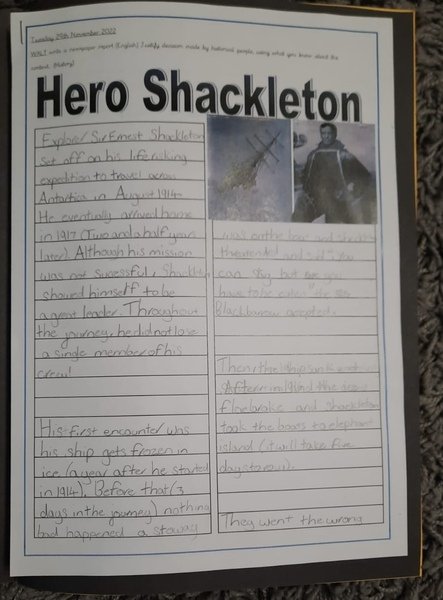 Tuesday 29th November 2022
WALT write a newspaper report (English) Justify decision made by historical people, using what you know about the
context. (history)
Hero Shackleton
Explorer Sir Ernest Shackleton
set off on his life risking
expedition to travel across
Antartica in August 1914.
He eventually arrived home
in 1917 (Two and a half years
later). Although his mission
was not sucessful, Shackleton
showed himself to be
a great leader. Throughout
the journey, he did not lose
a single member of his
crew!
His first encounter was
his ship gets frozen in
ice (a year after he started
in 1914). Before that (3
days in the journey) nothing
bad happened a stoway
was on the boat and
threatended and said "You
can stay but
have to be eaten" the
Blackborrow accepted.
Then, the ship sank
After the
floe broke and Shackleton
took the boats to elephant
island (it will take five
days to row).
They went the wrong